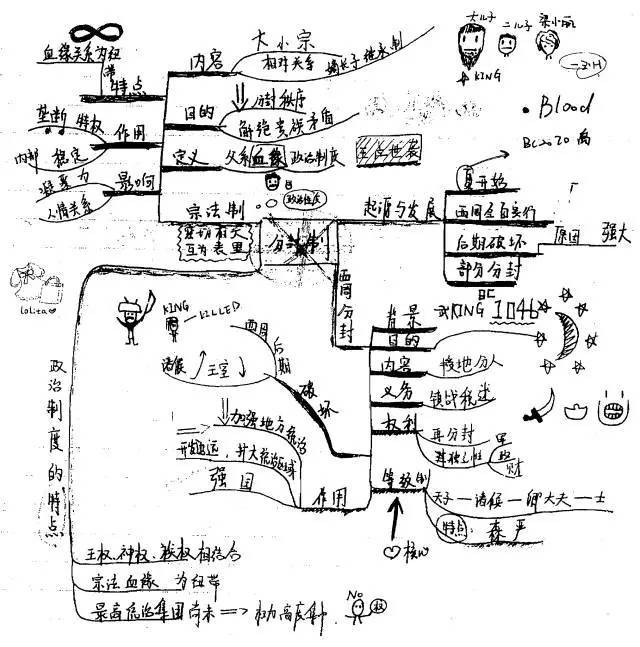 血缘关系为纽带
特点
垄断 特权
作用
内部 稳定
凝聚力
影响
人情关系
内容
大小宗
相对关系
嫡长子继承制
目的
分封秩序
解绝贵族矛盾
定义
父系血缘政治制度
宗法制
政治制度
密切相关
互为表里
分封制
大儿子
二儿子
梁小丽
KING
Blood
BC2070 禹
起源与发展
夏开始
西周全自实行
后期破坏
原因
强大
部分分封
lolita
KING
KILLED
西周
后期
诸侯
王室
破坏
西周分封
背景
BC
武KING 1046
目的
内容
授地分人
义务
镇战税述
权利
再分封
独立性
军
政
财
等级制
天子—诸侯—卿大夫—士
特点:
森严
核心
作用
加强地方统治
开发边远,扩大统治区域
强国
政治制度的特点
王权、神权、族权相结合
宗法血缘 为纽带
最高统治集团尚未 ⟹ 权力高度集中
No
权